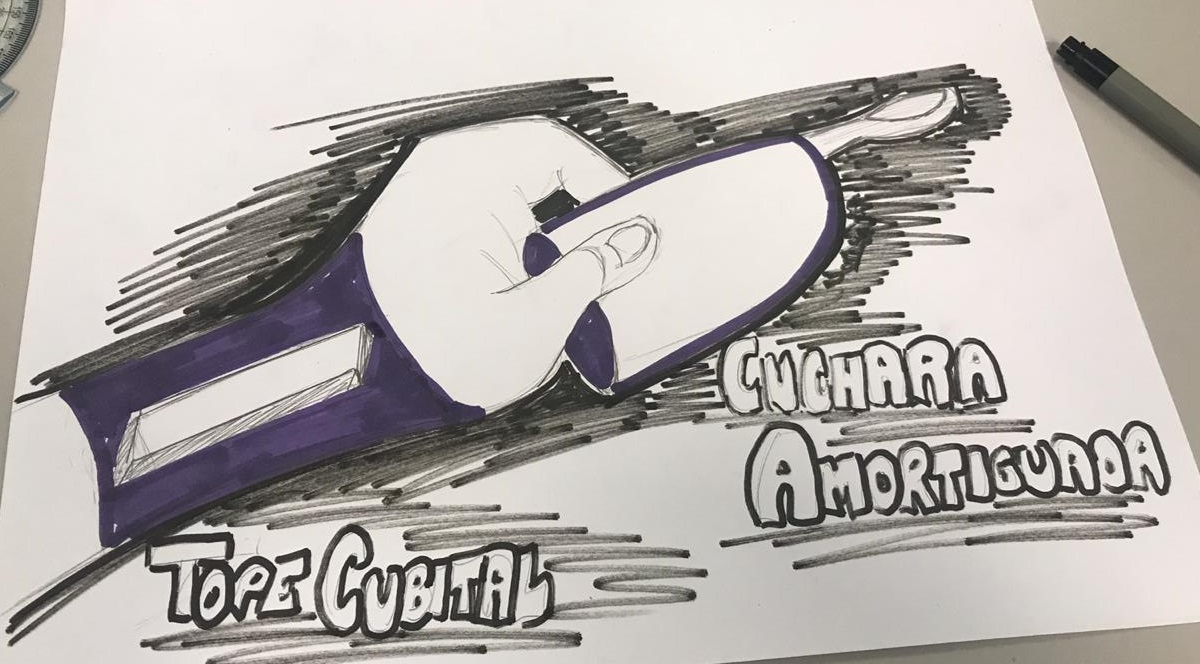 CUCHARA
AMORTIGUADA
TOPE CUBITAL